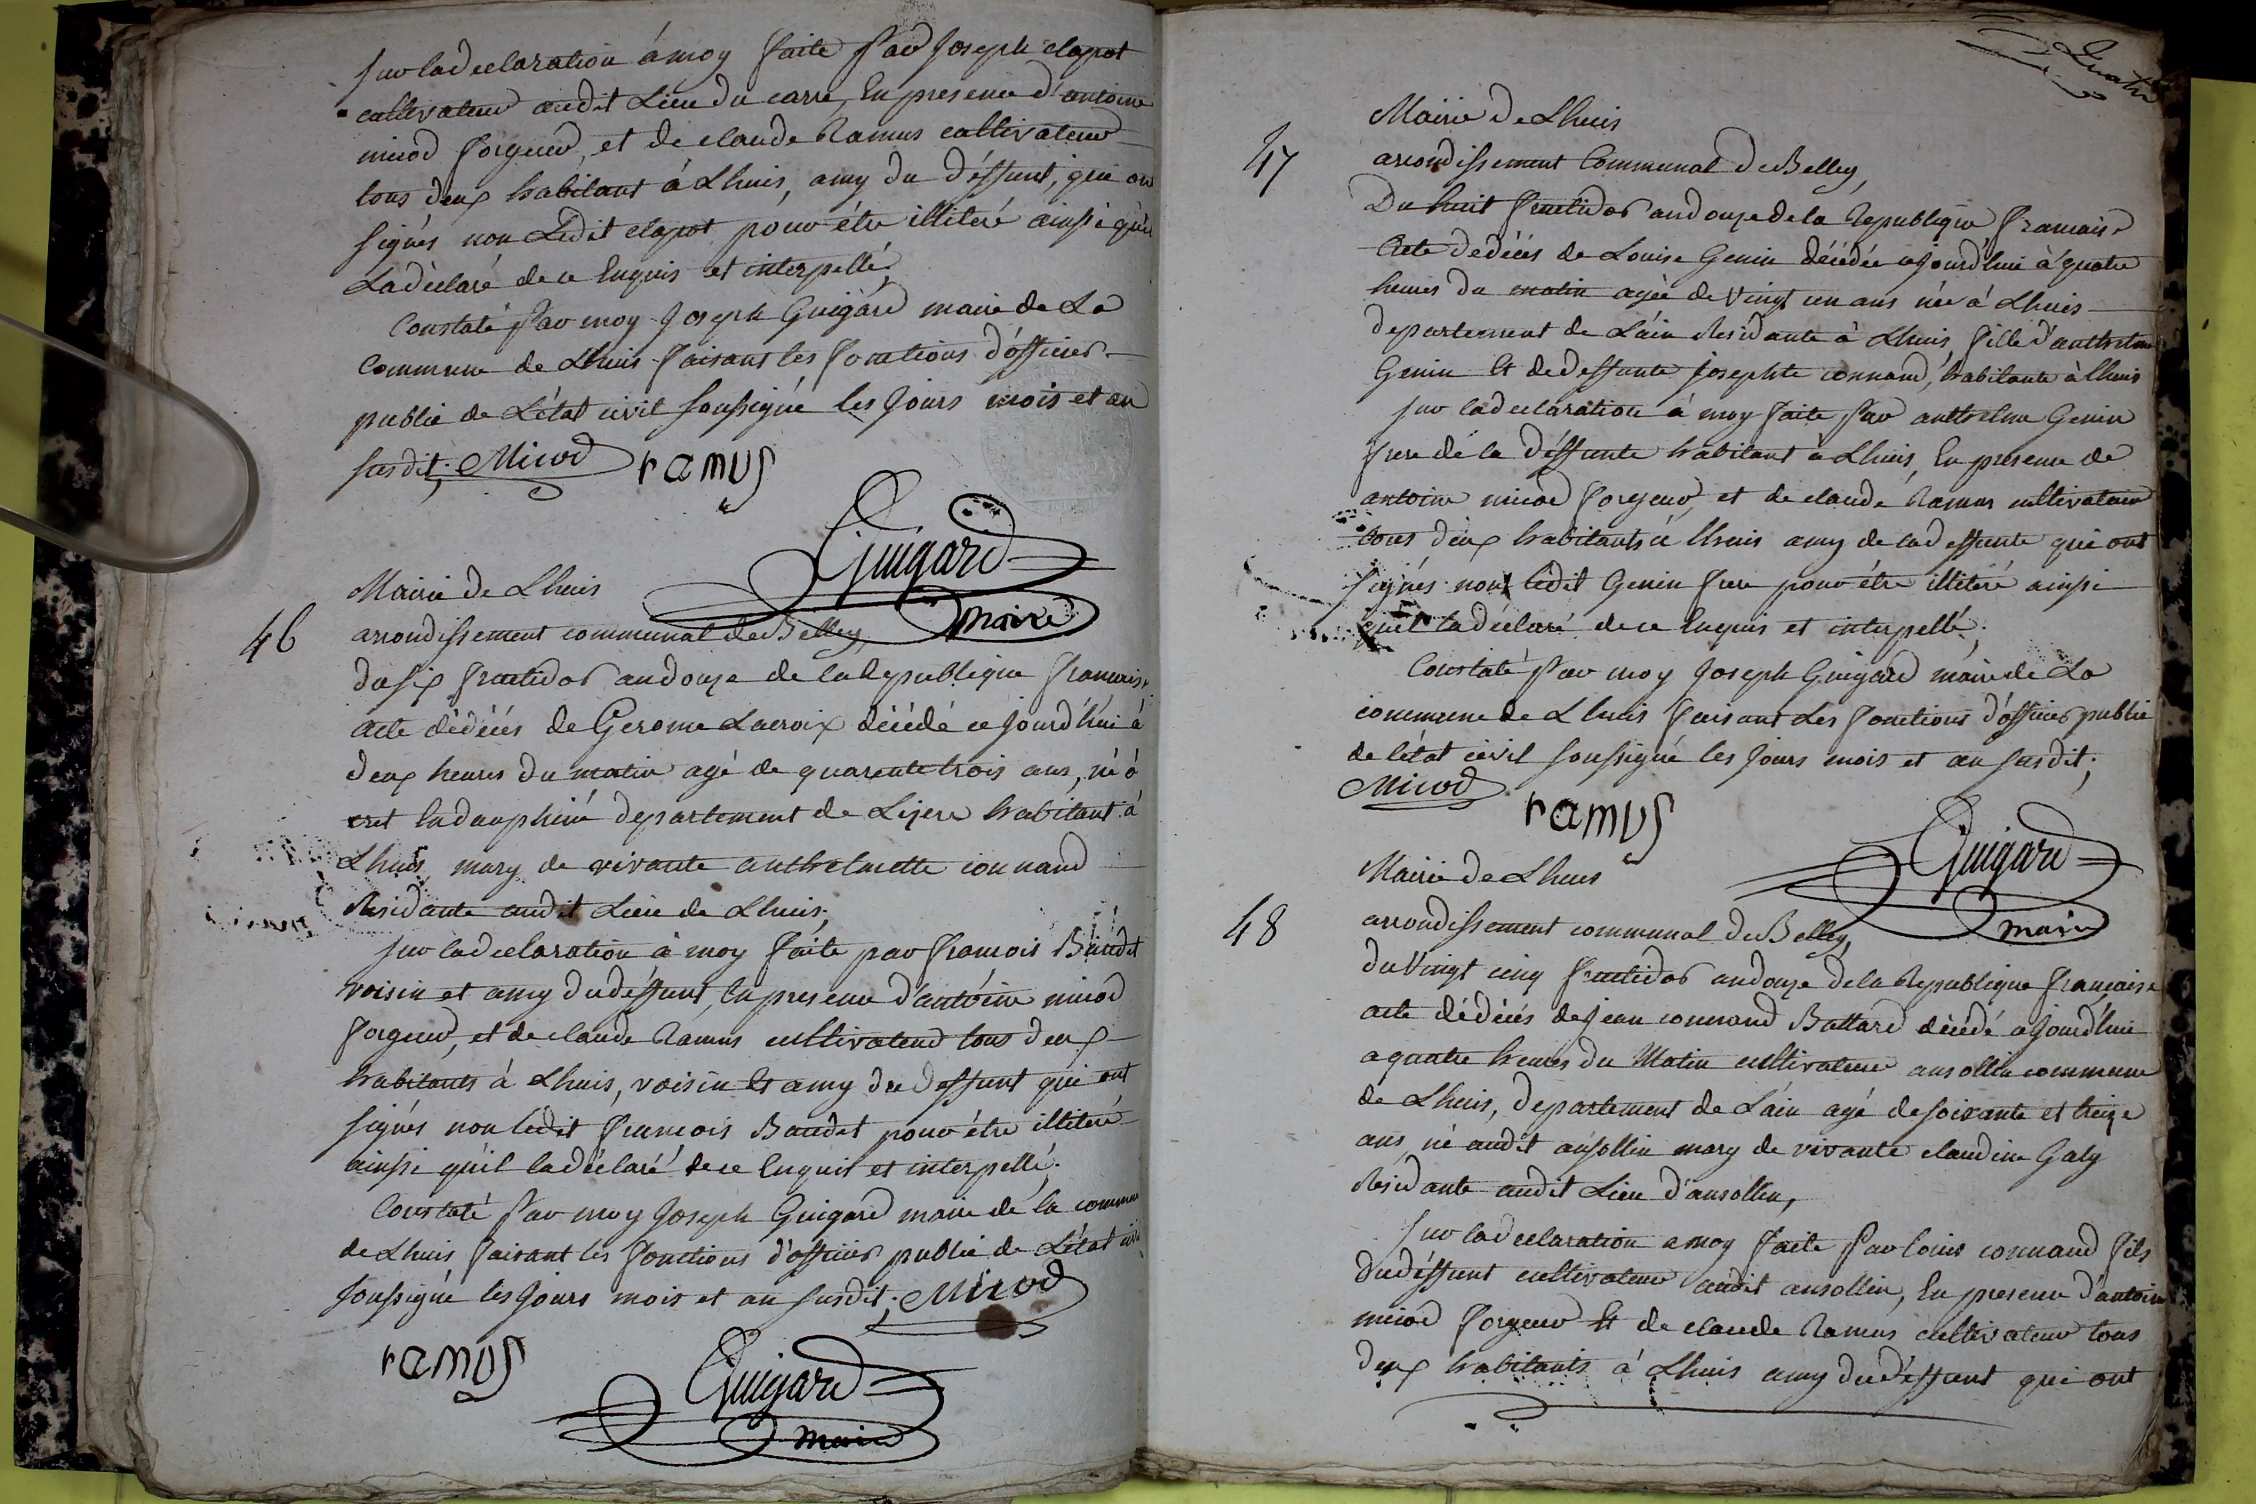 sur ladeclaration á moy faite Par Joseph clapot
cultivateur audit Lieu du carre, En presence d'antoine
micod forgeur, et de claude Ramus cultivateur
tous deux habitant á Lhuis, amy du déffunt, qui on
signés non Ledit clapot pour étre illiteré ainssi qu'il
Ladéclaré de ce Enquis et interpellé,
Constaté Par moy Joseph Guigard maire de La
Commune de Lhuis faisant les fonctions d'officier
public de L'état civil soussigné les Jours mois et an
susdit; Micod ramus
Guigard
maire
Mairie de Lhuis
46
arrondissement communal de Belley,
du six fructidor an douze de la Republique francaise
acte dédécés de Gerome Lacroix décédé ce jourd'hui á
deux heures du matin agé de quarente trois ans, né á
cret En dauphiné departement de Lizere habitant á
Lhuis, mary de vivante anthelmette connand
Residante audit Lieu de Lhuis,
sur ladeclaration á moy faite par francois Baudet
voisin et amy dudéffunt, En presence d'antoine micod
forgeur, et de claude Ramus cultivateur tous deux
habitants á Lhuis, voisin Et amy du deffunt qui ont
signés non ledit francois Baudet pour étre illiteré
ainssi qu'il ladéclaré de ce Enquit et interpellé.
Constaté Par moy Joseph Guigard maire de la commune
de Lhuis faisant les fonctions d'officier public de L'état civil
soussigné les Jours mois et an susdit; Micod
ramus
Guigard
maire
Quatre
Mairie de Lhuis
47
arrondissement Communal de Belley,
Du huit fructidor an douze de la Republique francaise
Acte dedécés de Louise Genin décédée cejourd'hui á quatre
heures du matin agée de vingt un ans née á Lhuis
departement de L'ain Residante á Lhuis, fille d'anthelme
Genin Et de deffunte josephte connand, habitante á lhuis
sur ladeclaration á moy faite Par anthelme Genin
frere de la déffunte habitant á Lhuis, En presence de
antoine micod forgeur, et de claude Ramus cultivateur
tous deux habitants á lhuis amy de la deffunte qui ont
signés non ledit Genin frere pour étre illiteré ainssi
quil ladéclaré de ce Enquis et interpellé,
Constaté Par moy Joseph Guigard maire de La
commune de Lhuis faisant Les fonctions d'officier public
de l'état civil soussigné les Jours mois et an susdit;
Micod
ramus
Guigard
maire
Mairie de Lhuis
48
arrondissement communal de Belley,
du Vingt cinq fructidor an douze de la Republique francaise
acte dédécés de jean connand Battard décédé cejourd'hui
a quatre heures du Matin cultivateur ansollin commune
de Lhuis, departement de L'ain agé de soixante et treize
ans, né audit ansollin mary de vivante claudine Galy
Residante audit Lieu d'ansollin,
sur ladeclaration a moy faite Par louis connand fils
dudéffunt cultivateur audit ansollin, En presence d'antoine
micod forgeur Et de claude Ramus cultivateur tous
deux habitants á Lhuis amy dudéffunt qui ont